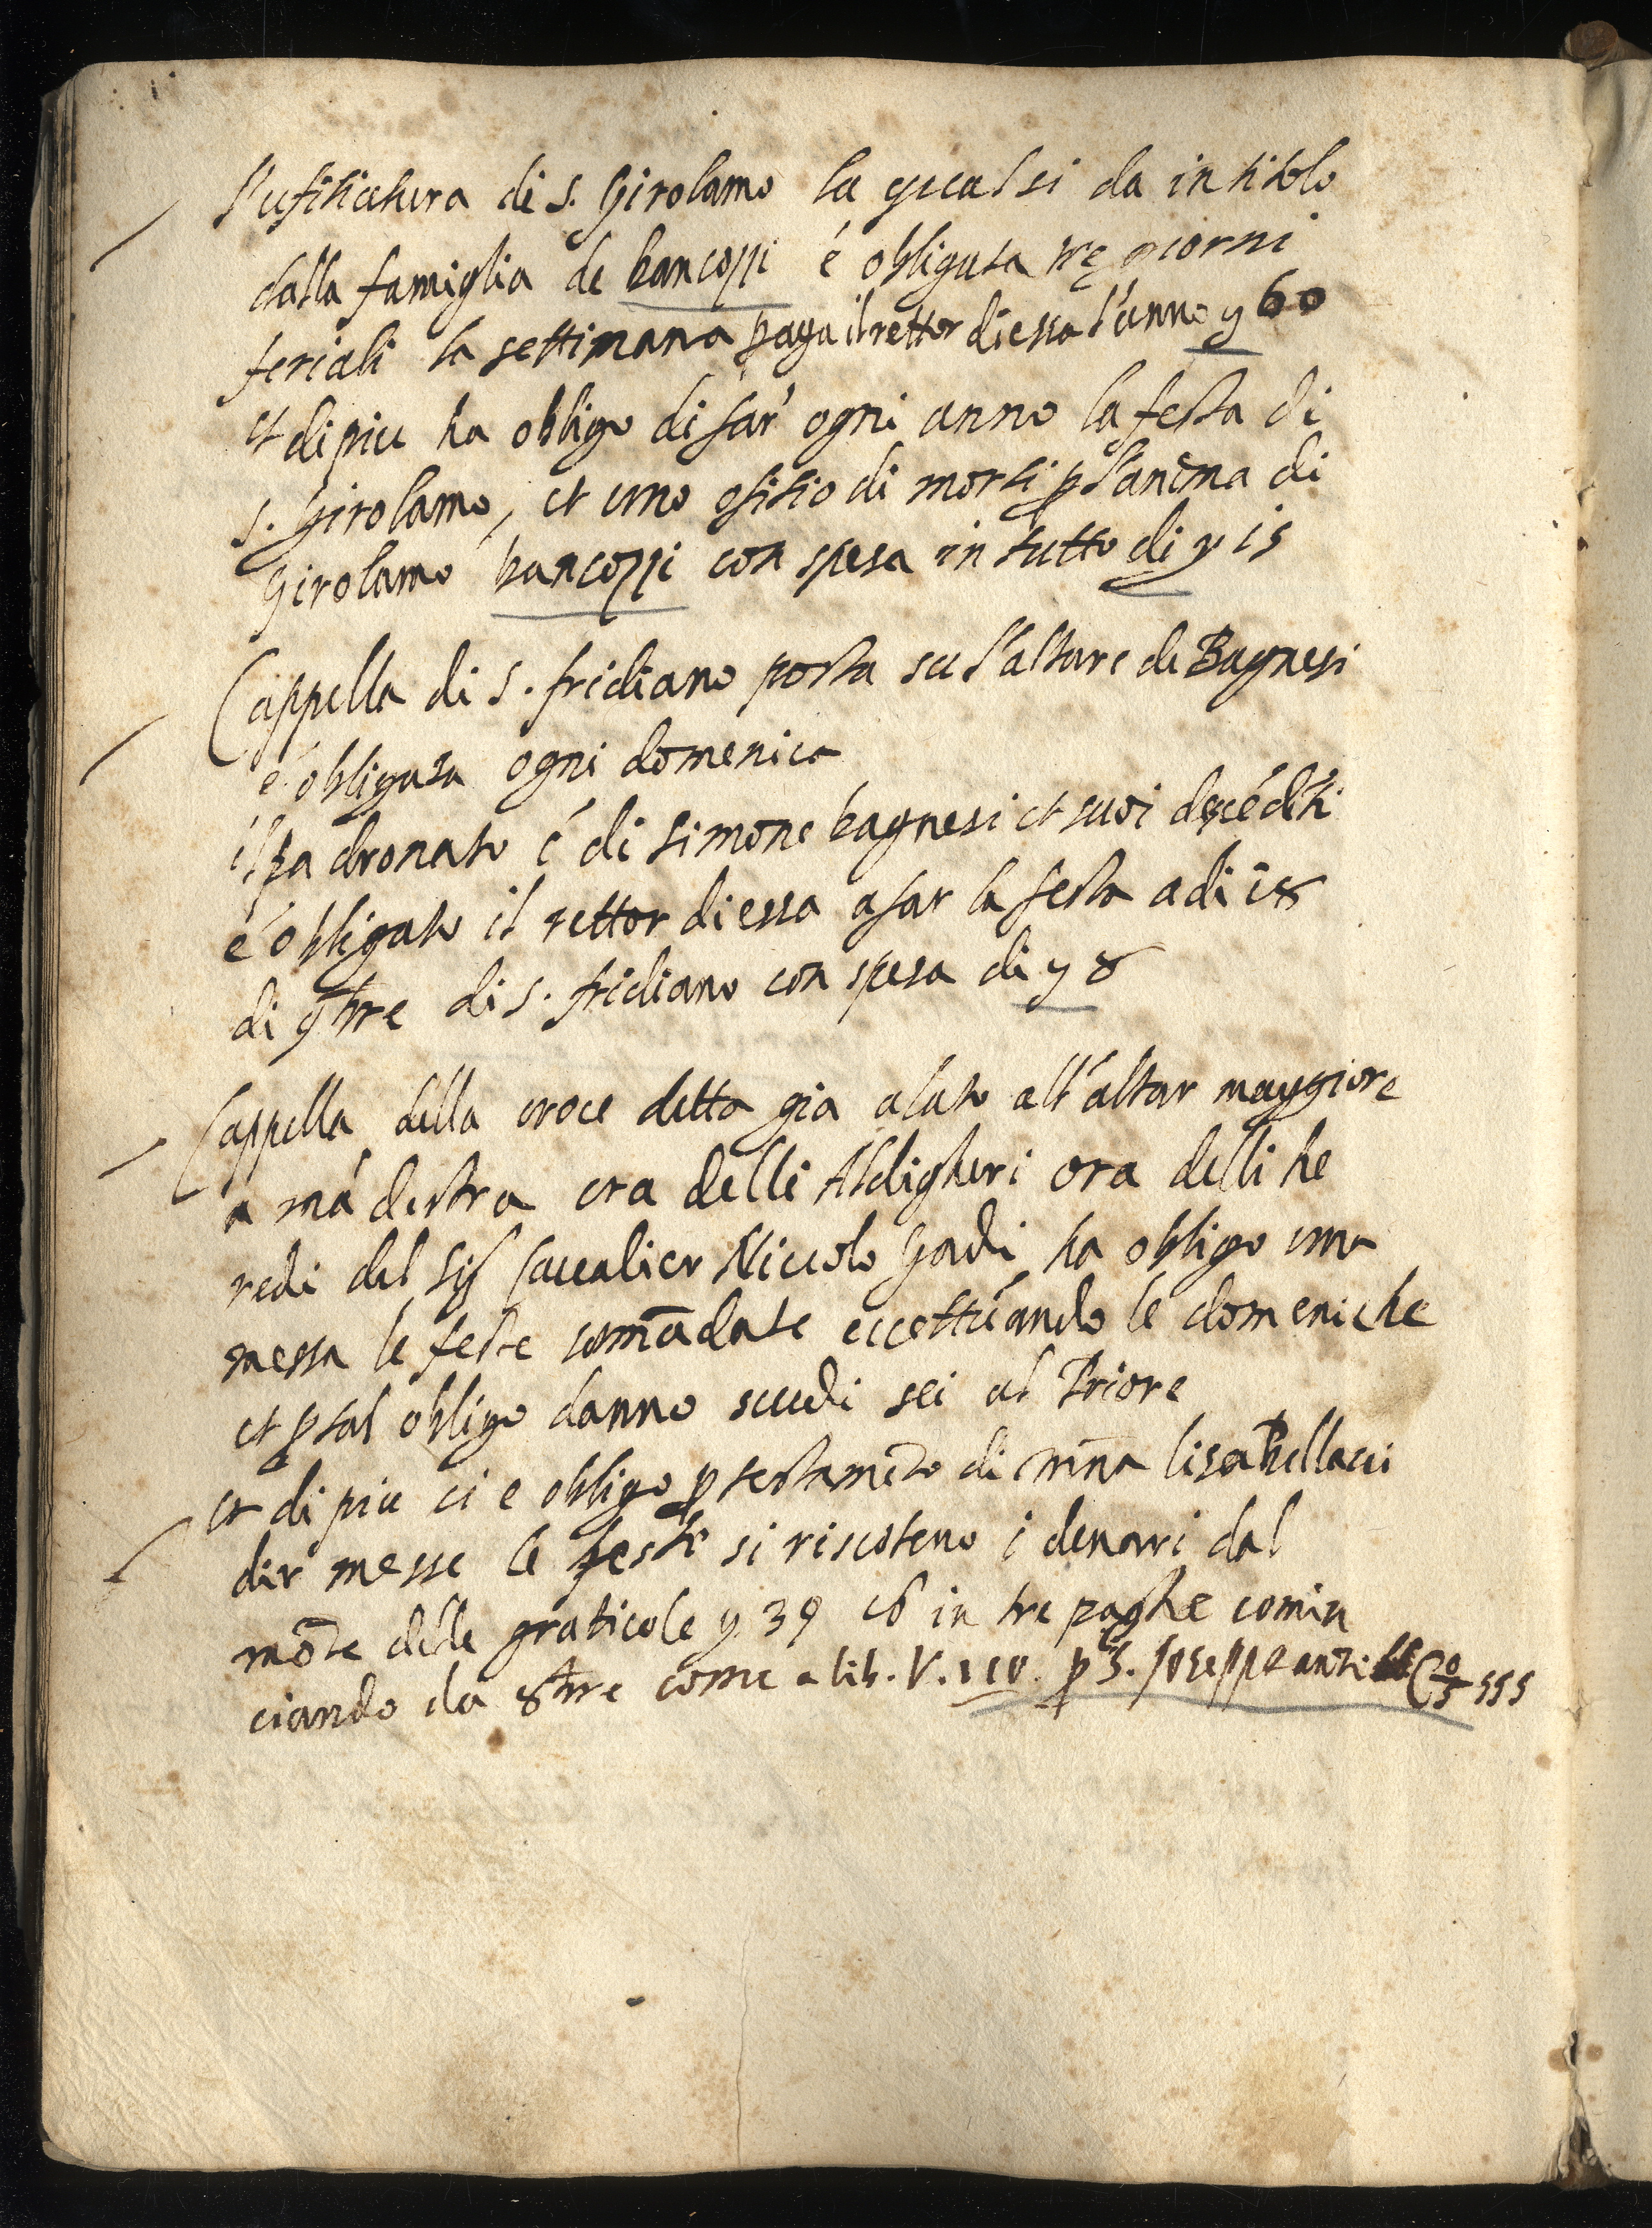 l'ufitiatura di s. Girolamo la qual si da in titolo
dalla famiglia de bancozzi é obligata tre giorni
feriali la settimana paga il rettor di essa l'anno y 60
et di piu ha obligo di far ogni anno la festa di
s. Girolamo, et uno ofitio di morti p l'anima di
Girolamo bancozzi con spesa in tutto di y 15
Cappella di s. fridiano posta su l'altare de Bagnesi
é obligata ogni domenica
il padronato é di simone bagnesi et suoi descédéti
é obligato il rettor di essa a far la festa adi 18
di 9bre di s. fridiano con spesa di y 8
Cappella della croce detta gia alato all'altar maggiore
a má destra era delli Aldigheri ora delli he
redi del Sig Cavalier Niccolo Gadi ha obligo una
messa le feste comādate eccettuando le domeniche
et p tal obligo danno scudi sei al Priore
et di piu ci e obligo p testamēto di mna lisabellacci
dir messe le feste si riscoteno i denari dal
mōte delle graticole y 39 16 in tre paghe comin
ciando da 8bre come a lib. V. 110. p S. Joseppe anti 555